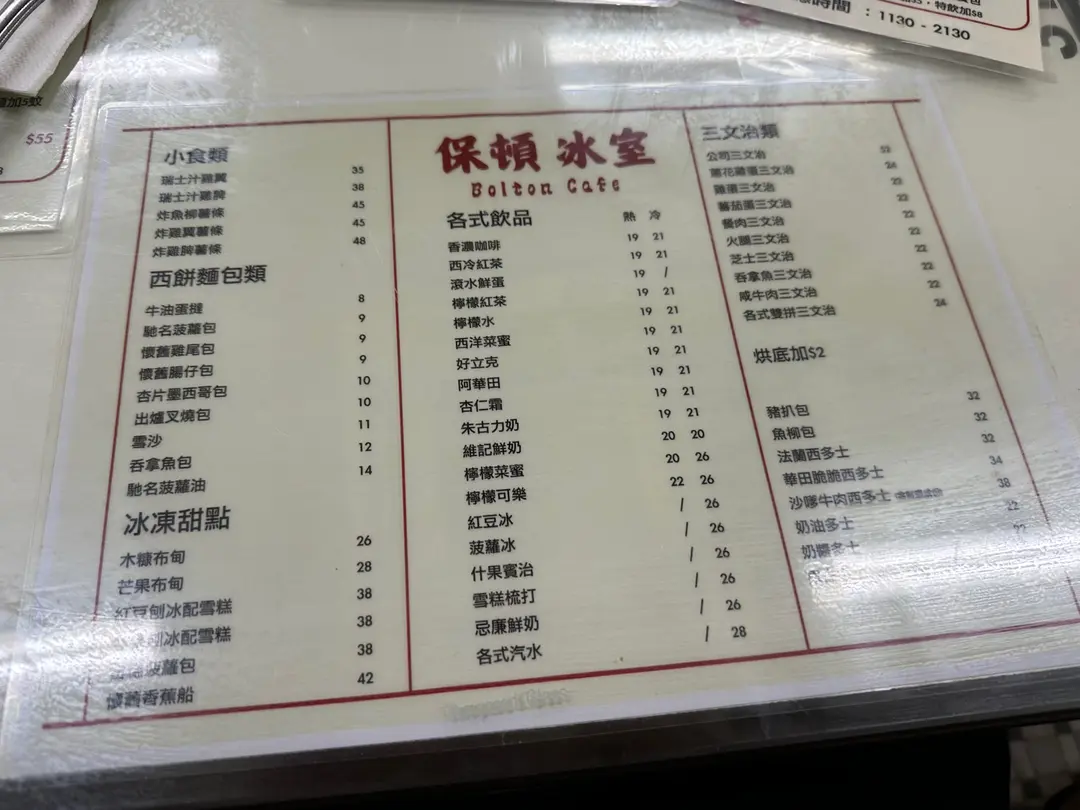 特飲加$8
時間 : 1130 - 2130
$55
保頓冰室
Bolton Cafe
小食類
瑞士汁雞翼 35
瑞士汁雞髀 38
炸魚柳薯條 45
炸雞翼薯條 45
炸雞髀薯條 48
西餅麵包類
牛油蛋撻 8
馳名菠蘿包 9
懷舊雞尾包 9
懷舊腸仔包 9
杏片墨西哥包 10
出爐叉燒包 10
雪沙 11
吞拿魚包 12
馳名菠蘿油 14
冰凍甜點
木糠布甸 26
芒果布甸 28
紅豆刨冰配雪糕 38
刨冰配雪糕 38
菠蘿包 38
懷舊香蕉船 42
各式飲品 熱 冷
香濃咖啡 19 21
西冷紅茶 19 21
滾水鮮蛋 19 /
檸檬紅茶 19 21
檸檬水 19 21
西洋菜蜜 19 21
好立克 19 21
阿華田 19 21
杏仁霜 19 21
朱古力奶 19 21
維記鮮奶 20 20
檸檬菜蜜 20 26
檸檬可樂 22 26
紅豆冰 / 26
菠蘿冰 / 26
什果賓治 / 26
雪糕梳打 / 26
忌廉鮮奶 / 26
各式汽水 / 28
三文治類
公司三文治
蔥花雞蛋三文治 24
雞蛋三文治 22
蕃茄蛋三文治 22
餐肉三文治 22
火腿三文治 22
芝士三文治 22
吞拿魚三文治 22
咸牛肉三文治 22
各式雙拼三文治 24
烘底加$2
豬扒包 32
魚柳包 32
法蘭西多士 32
華田脆脆西多士 34
沙嗲牛肉西多士 38
奶油多士 22
奶醬多士 22